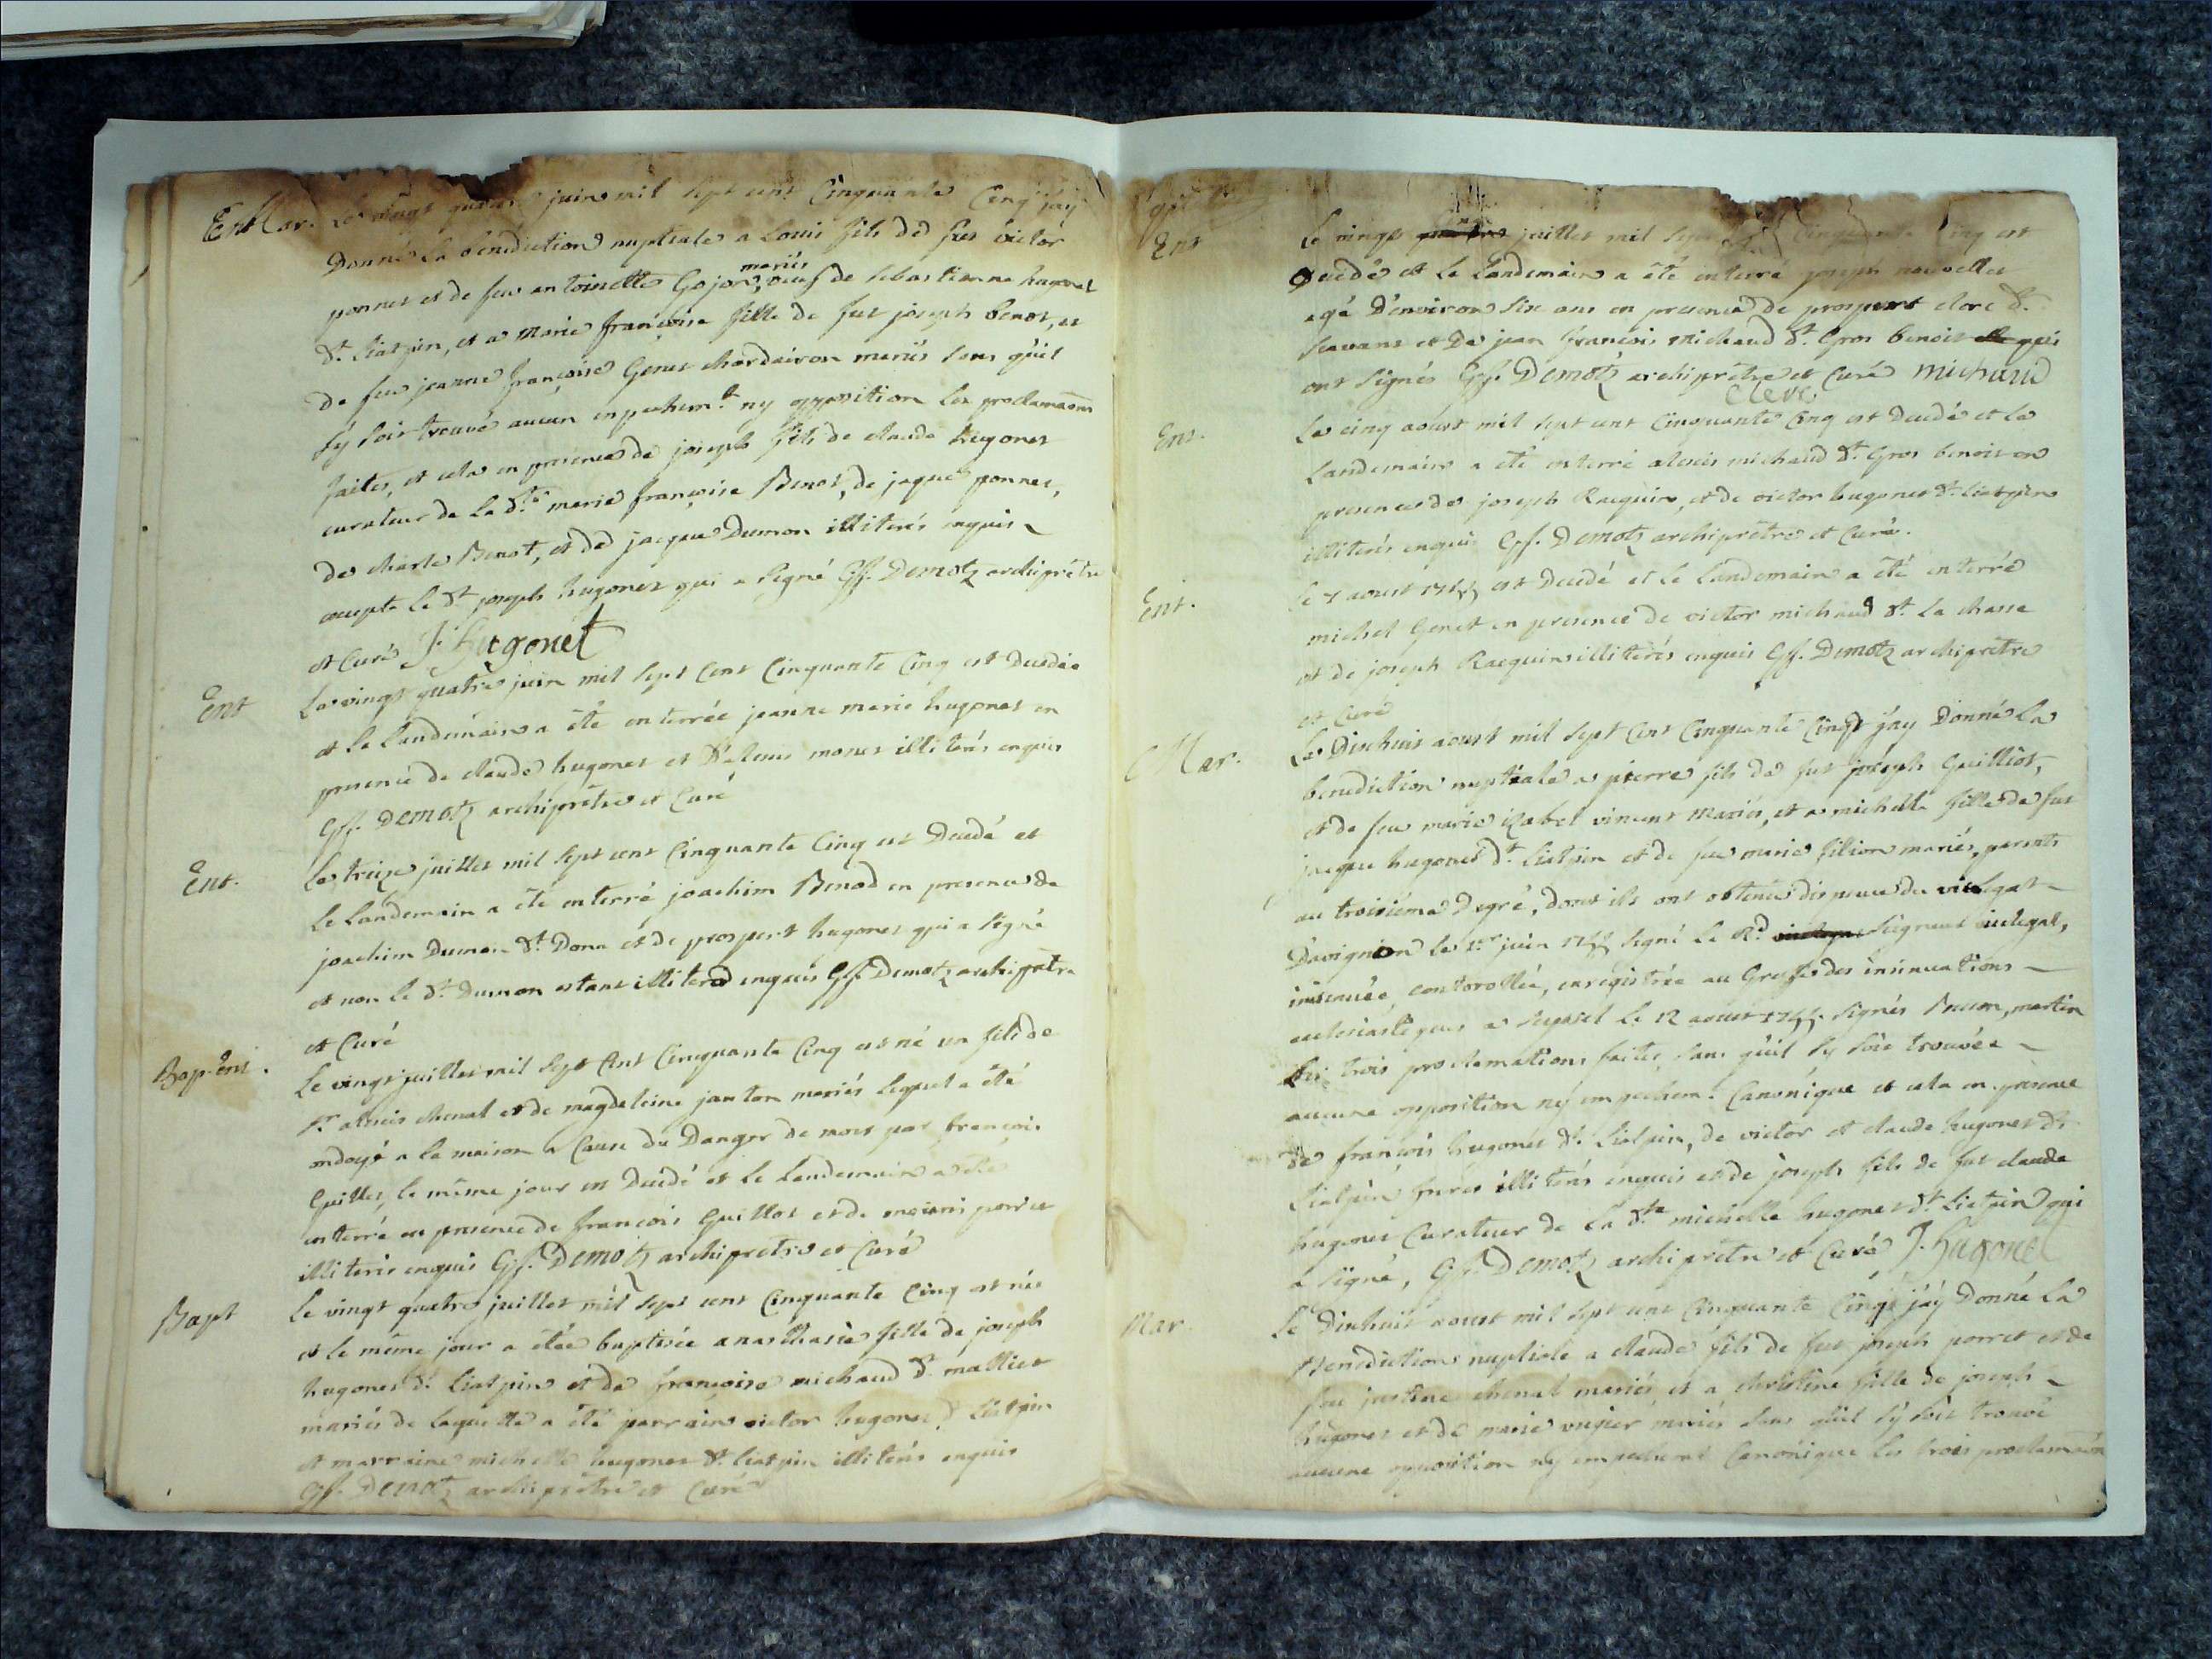 Ent Mar. Le vingt quatre juin mil sept cent Cinquante Cinq jay
Donné La benediction nuptiale a Louis fils de feu victor
ponnet et de feu antoinette Gojon, mariés veuf de sebastienne hugonet
dt. Liatpin, et a Marie françoise fille de fut joseph benot, et
de feu jeanne françoise Genet chardairon mariés sans qúil
sÿ soit trouvé aucun enpechemt. ny opposition les proclamaons
faites, et cela en presence de joseph fils de claude hugonet
curateur de La dte. marie françoise Benot, de jaque ponnet,
de charle Benot, et de jacque Dumon illiterés enquis
excepte le dt joseph hugonet qui a signé Gf. Demotz archiprêtre
et Curé J. hugonet
Ent Le vingt quatre juin mil sept Cent Cinquante Cinq est decedée
et le landemain a été enterrée jeanne marie hugonet en
presence de claude hugonet et de Louis monet illiterés enquis
Gf. Demotz archiprêtre et Curé
Ent. Le treize juillet mil sept cent Cinquante Cinq est Decedé et
le landemain a été enterré joachim Benod en presence de
joachim Dumon dt. Dona et de prospert hugonet qui a signé
et non le dt. Dumon estant illiteré enquis Gf. Demotz archiprêtre
et Curé
Bap. Ent. Le vingt juillet mil sept Cent Cinquante Cinq est né un fils de
sr. alexis chenal et de magdeleine janton mariés lequel a été
ondoyé a la maison a Cause du Danger de mort par françois
Guillet, le même jour est Decedé et le landemain a été
enterré en presence de françois Guillot et de porret
illiterés enquis Gf. Demotz archiprêtre et Curé
Bapt Le vingt quatre juillet mil sept cent Cinquante Cinq est née
et le même jour a étée baptisée anasthasie fille de joseph
hugonet dt. Liatpin et de françoise michaud dt. mallict
mariés de laquelle a été parrain victor hugonet dt. Liatpin
et marraine michelle hugonet dt. liatpin illiterés enquis
Gf. Demotz archiprêtre et Curé
Ent Le vingt cinq juillet mil sept cent Cinquante Cinq est
Decidé et le Landemain a été enterré joseph nouvelles
agé D'environ six ans en presence de prospert clerc dt.
savant et de jean françois michaud dt. Gros benoit qui
ont signés Gf. Demotz archiprêtre et Curé michaud
Clerc
Ent. Le cinq aoust mil sept cent Cinquante Cinq est Decedé et le
landemain a été enterré alexis michaud dt. Gros benoit en
presence de joseph Racquin, et de victor hugonet dt. Liatpin
illiterés enquis Gf. Demotz archiprêtre et Curé.
Ent. Le 7 aoust 1755 est Decedé et le landemain a été enterré
michel Genet en presence de victor michaud dt. La chasse
et de joseph Racquin illiterés enquis Gf. Demotz archiprêtre
et Curé
Mar. Le Dixhuit aoust mil sept Cent Cinquante Cinq jay Donné La
benediction nuptiale a pierre fils de fut joseph Guilliot,
et de feu marie izabel vincent Mariés, et a michelle fille de fut
jacque hugonet dt. Liatpin et de feu marie fillion mariés, parents
au troisiéme Degré, dont ils ont obtenu dispence du vicelegat
D'avignion le 1er juin 1755 signé le Rd. seigneur vicelegat,
insinuée, contorollée, enregistrée au Greffe des insinuations
ecclesiastiques a seyssel le 12 aoust 1755. signés Bucon, martin
Les trois proclamations faites, sans qúil sy soit trouvée
aucune opposition ny empechemt. Canonique et cela en presence
de françois hugonet dt. Liatpin, de victor et claude hugonet dt.
Liatpin freres illiterés enquis et de joseph fils de fut claude
hugonet Curateur de La dte michelle hugonet dt. Liatpin qui
a signé, Gf. Demotz archiprêtre et Curé J. hugonet
Mar. Le Dixhuit aoust mil sept cent Cinquante Cinq jaÿ Donné La
Benediction nuptiale a claude fils de fut joseph porret et de
feu justine chenal mariés, et a christine fille de joseph
hugonet et de marie vugier mariés sans qúil sÿ soit trouvé
aucune opposition ny empechemt Canonique les trois proclamaon